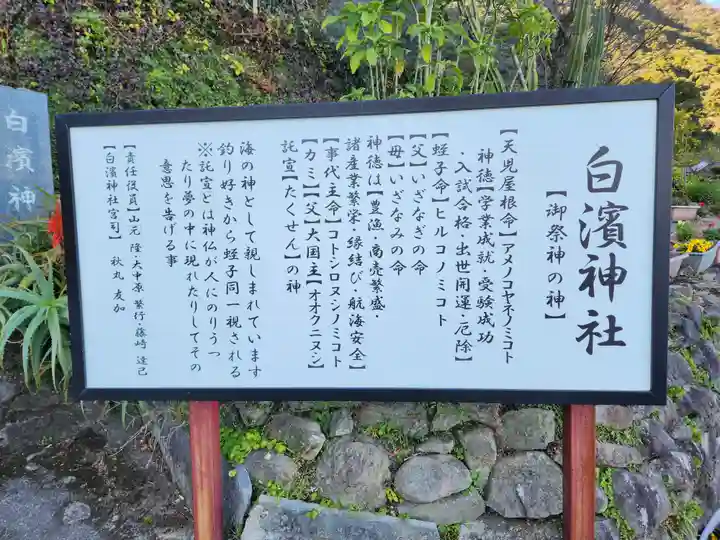 白濱神社
【御祭神の神】
【天児屋根命】アメノコヤネノミコト
神徳【学業成就・受験成功
・入試合格・出世開運・厄除】
【蛭子命】ヒルコノミコト
【父】いざなぎの命
【母】いざなみの命
神徳は【豊漁・商売繁盛・
諸産業繁栄・縁結び・航海安全】
【事代主命】コトシロヌシノミコト
【カミ】【父】大国主【オオクニヌシ】
託宣【たくせん】の神
海の神として親しまれています
釣り好きから蛭子同一視される
※託宣とは神仏が人にのりうつ
たり夢の中に現れたりしてその
意思を告げる事
【責任役員】山元 隆・大中原 繁行・藤崎 達己
【白濱神社宮司】 秋丸 友加
白濱神